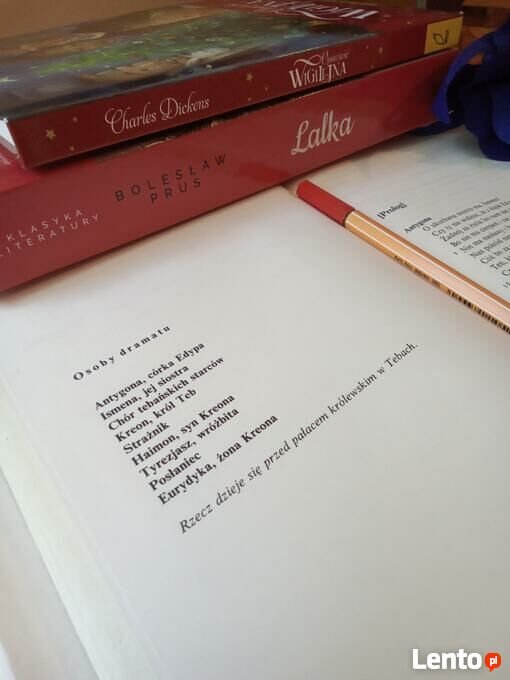 Charles Dickens
Opowieść
WIGILIJNA
KLASYKA
LITERATURY
BOLESŁAW
PRUS
Lalka
Osoby dramatu
Antygona, córka Edypa
Ismena, jej siostra
Chór tebańskich starców
Kreon, król Teb
Strażnik
Haimon, syn Kreona
Tyrezjasz, wróżbita
Posłaniec
Eurydyka, żona Kreona
Rzecz dzieje się przed pałacem królewskim w Tebach.
[Prolog]
Antygona
O ukochana siostro ma, Ismeno
Czy ty
Lento pl